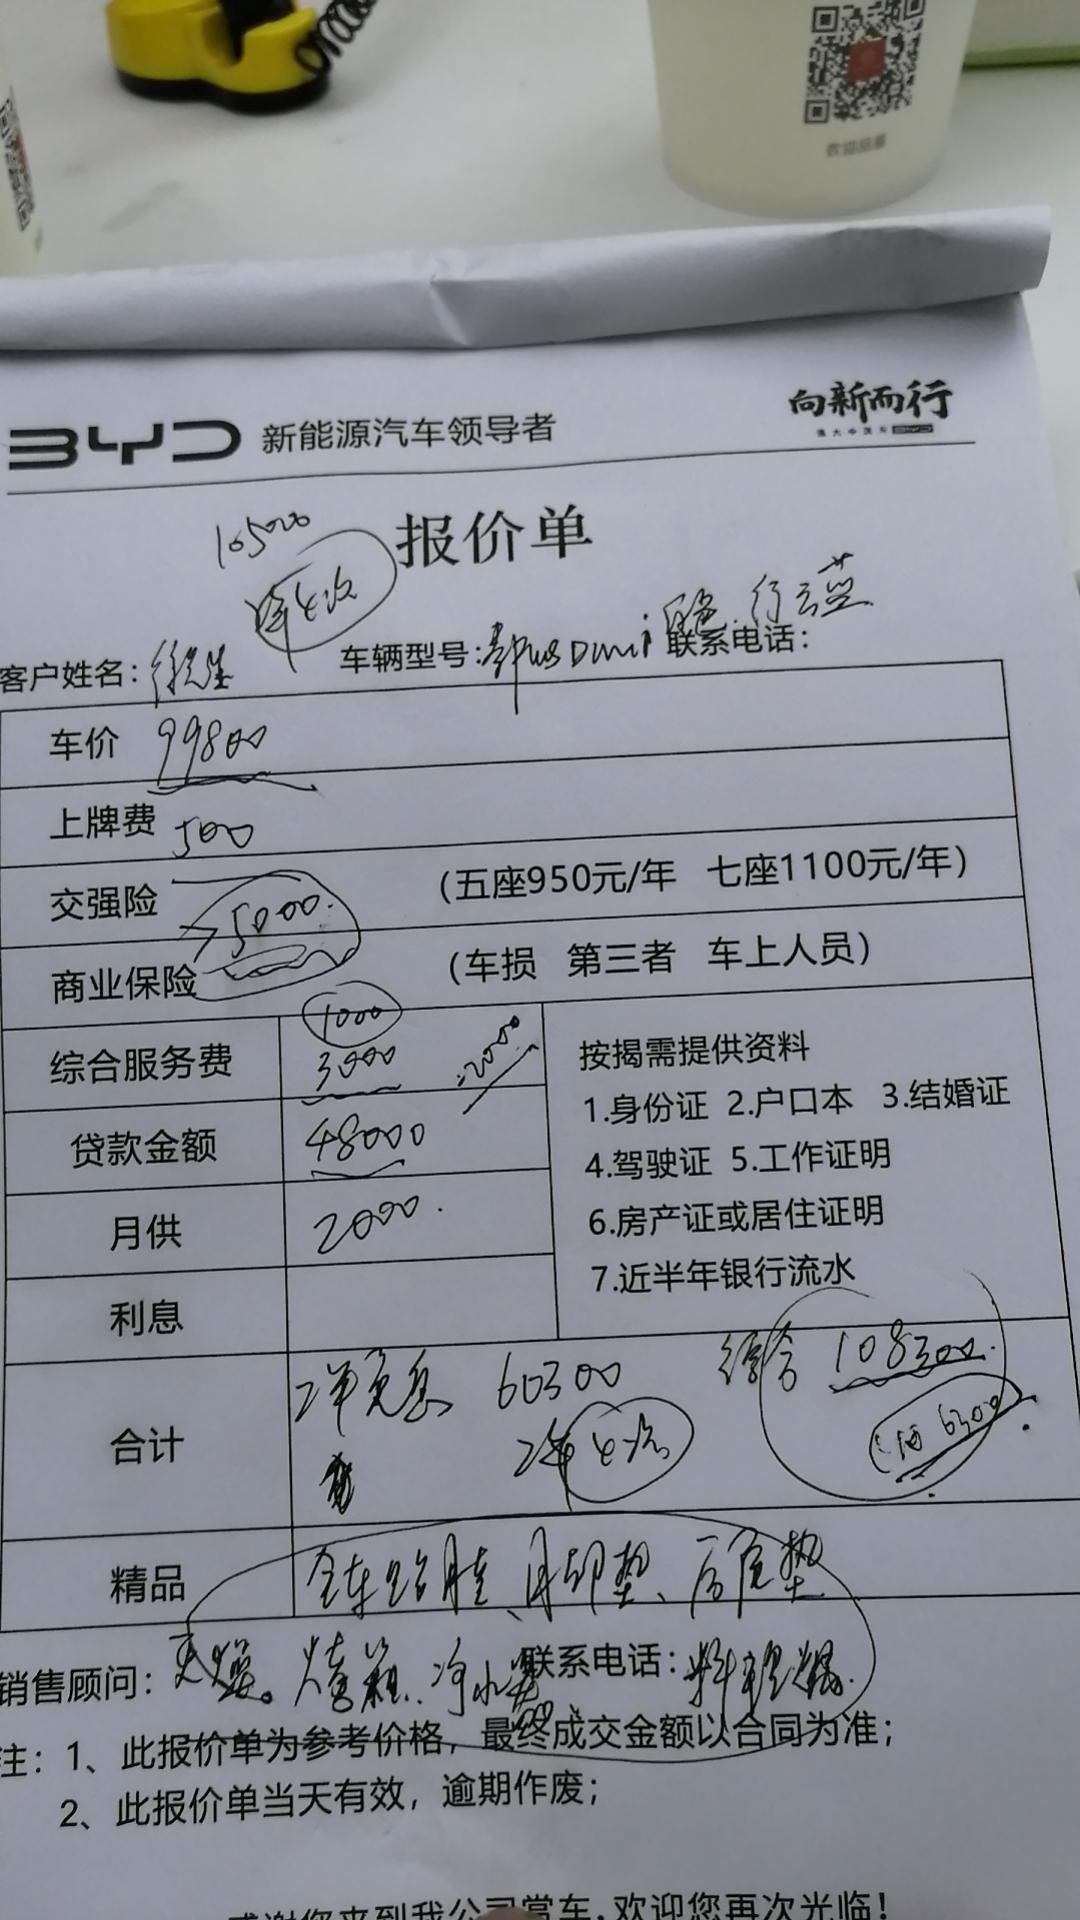 向新而行
BYD 新能源汽车领导者
105000
报价单
客户姓名： 车辆型号： Plus DM-i 联系电话：
车价 99800
上牌费 500
交强险 （五座950元/年 七座1100元/年）
5000.
商业保险 （车损 第三者 车上人员）
1000
综合服务费 3000 2000
按揭需提供资料
贷款金额 48000
1.身份证 2.户口本 3.结婚证
4.驾驶证 5.工作证明
月供 2000.
6.房产证或居住证明
7.近半年银行流水
利息
2年免息 60300 综合 108300.
合计 2年 6300
精品 全车 脚垫、后备垫
销售顾问： 联系电话：
注：1、此报价单为参考价格，最终成交金额以合同为准；
2、此报价单当天有效，逾期作废；
感谢您来到我公司赏车，欢迎您再次光临！